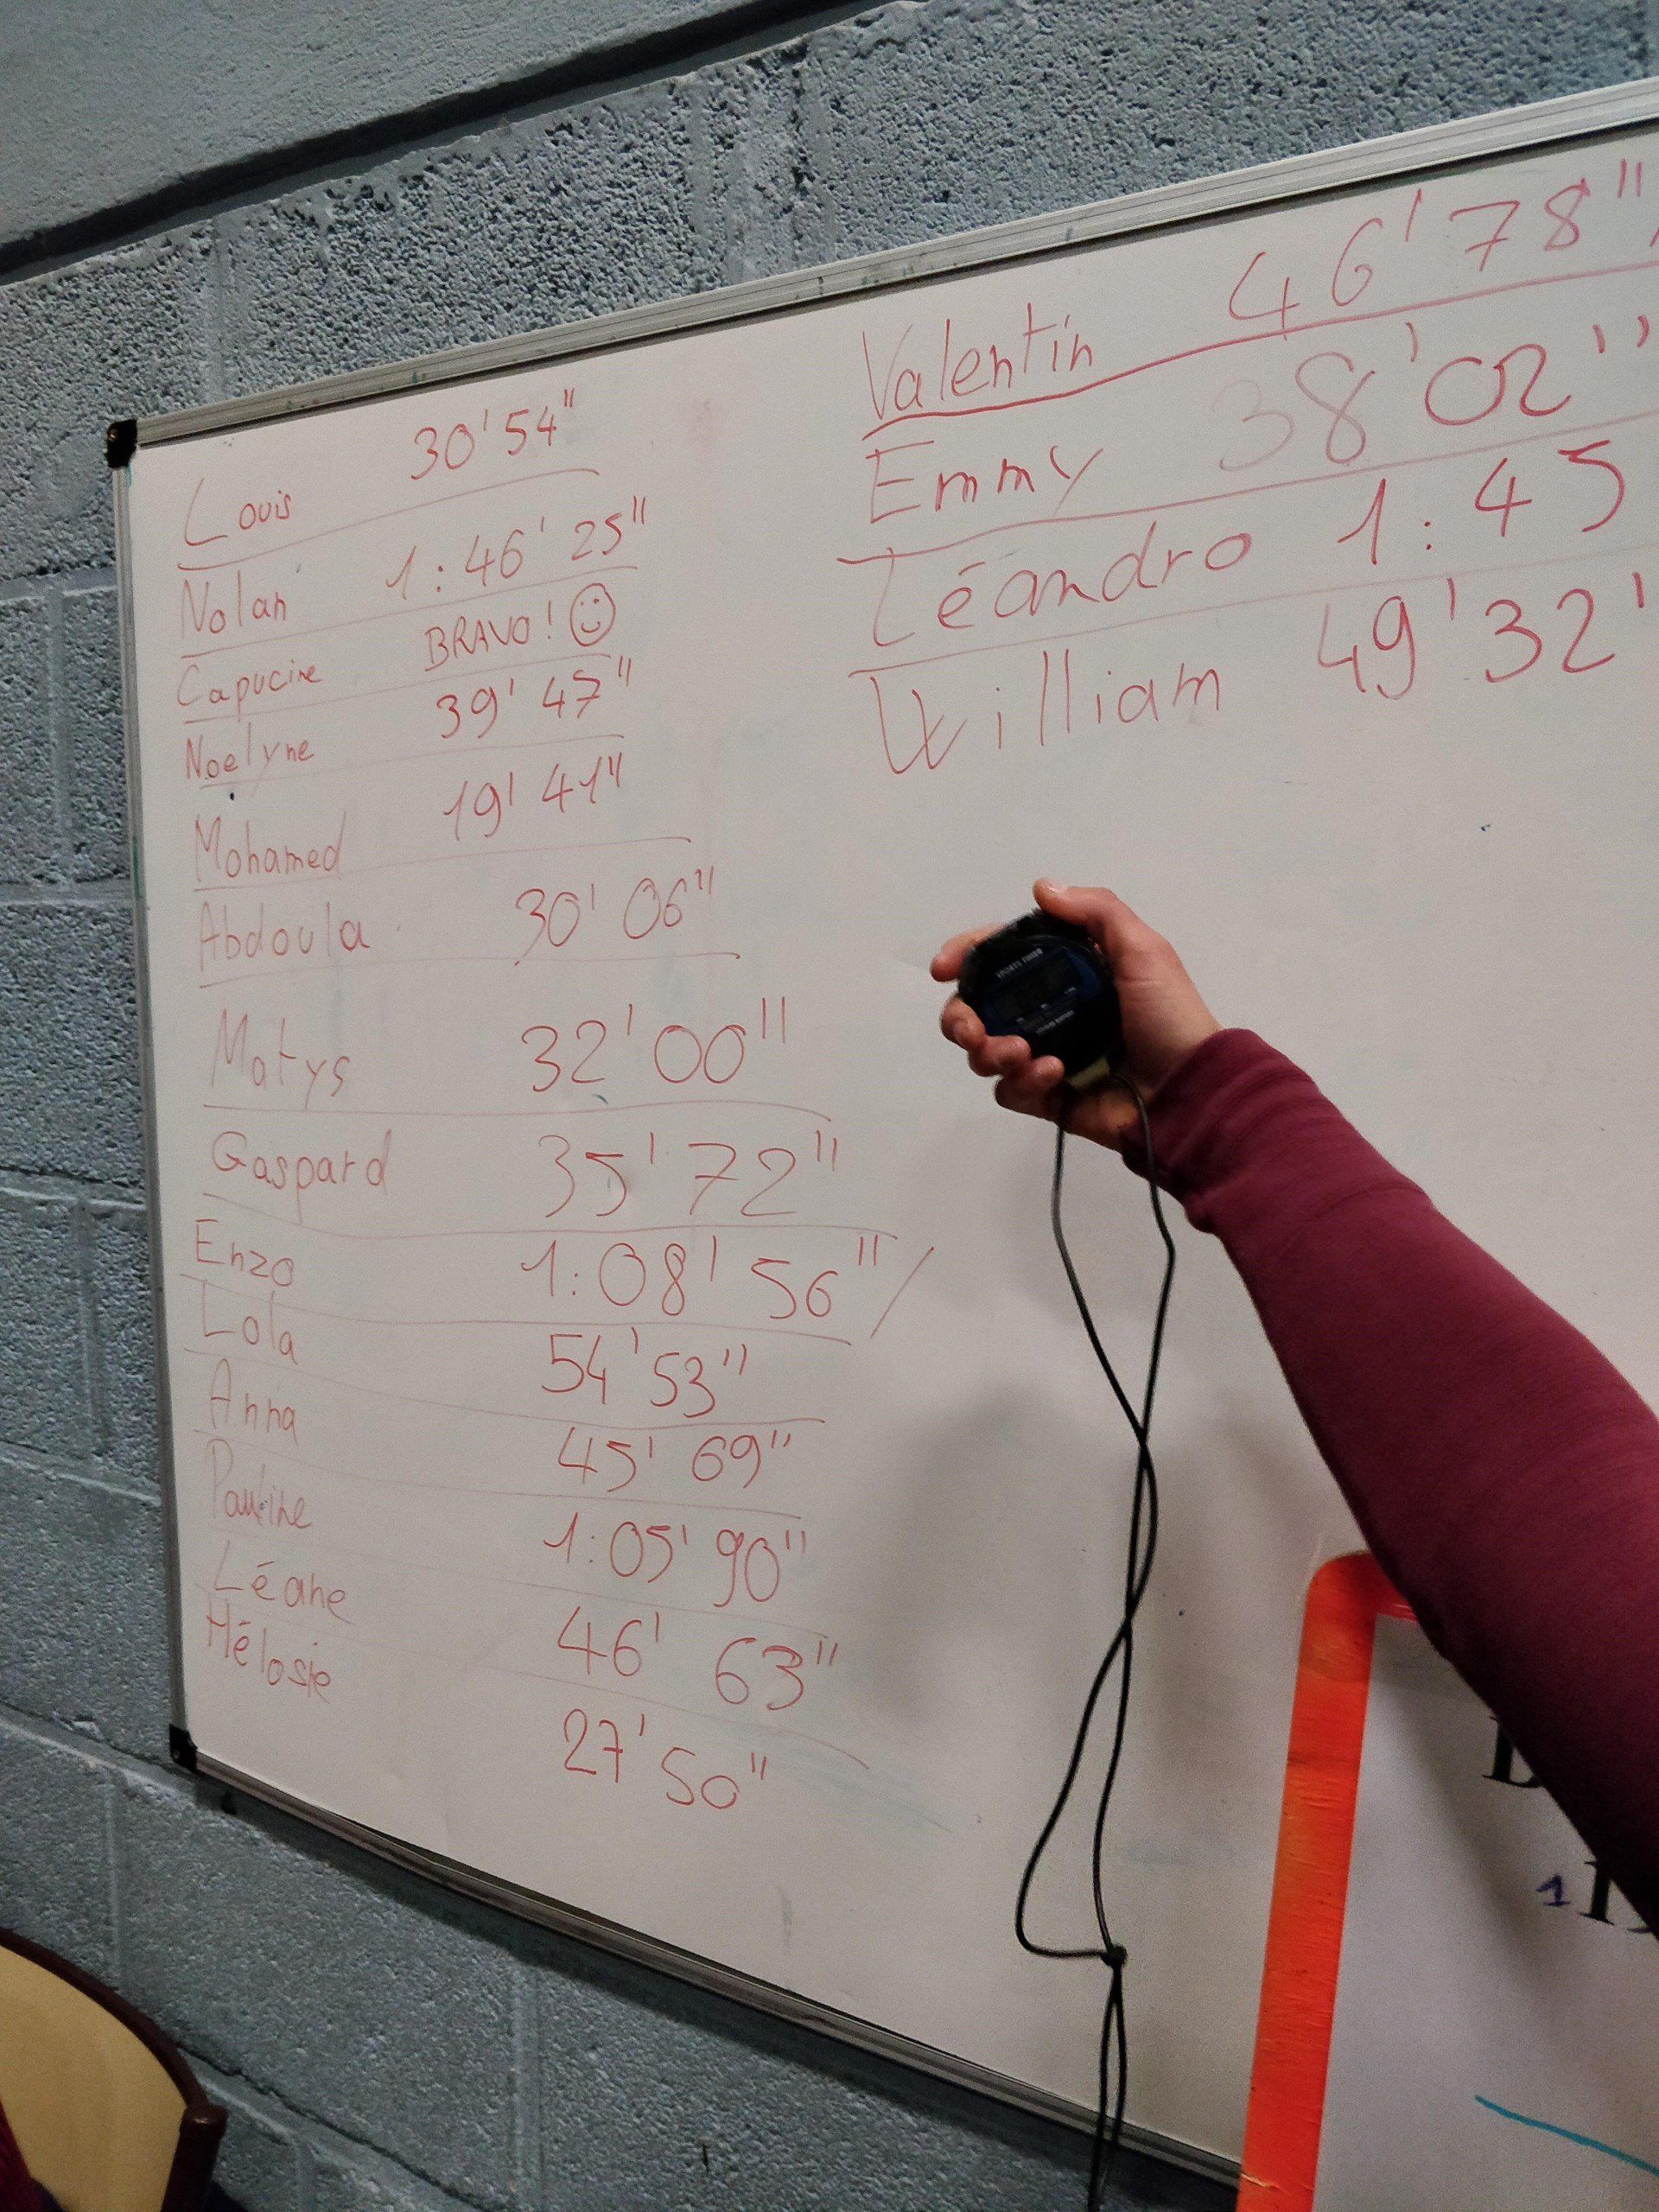 Louis 30'54"
Nolan 1:46'25"
Capucine BRAVO! ☺
Noelyne 39'47"
Mohamed 19'41"
Abdoula 30'06"
Matys 32'00"
Gaspard 35'72"
Enzo 1:08'56"
Lola 54'53"
Anna 45'69"
Pauline 1:05'90"
Léane 46'63"
Mélosie 27'50"
Valentin 46'78"
Emmy 38'02"
Léandro 1:45
William 49'32'
SPORTS TIMER
1